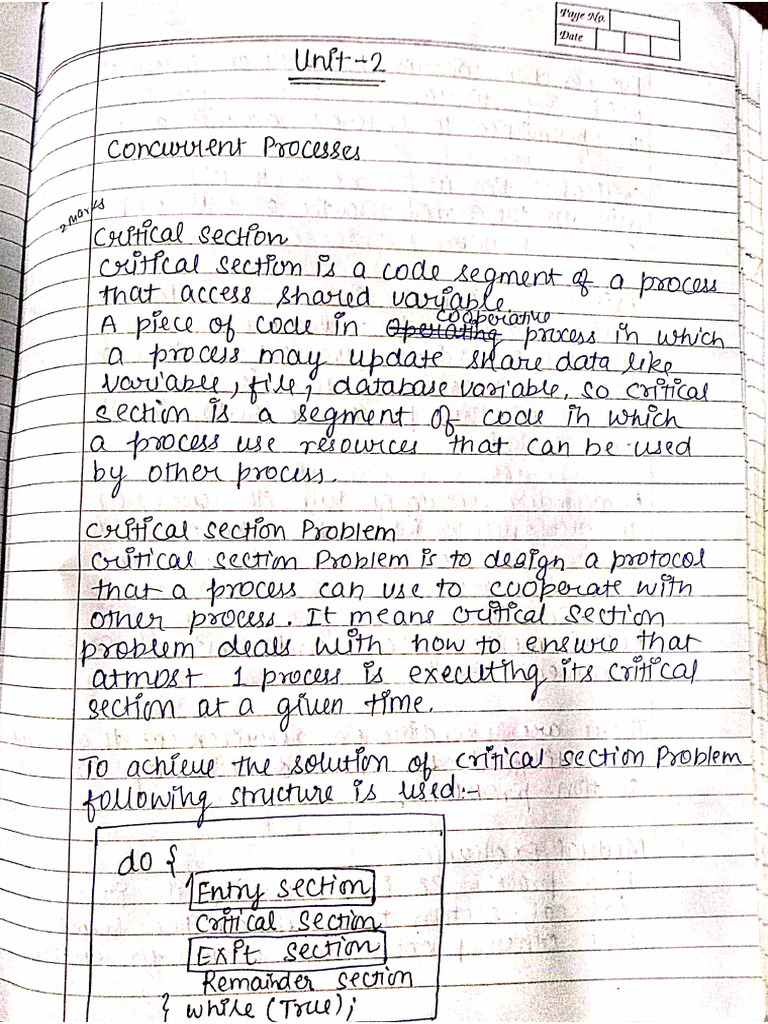 Page No.
Date
Unit-2
Concurrent Processes
2 marks
Critical Section
Critical section is a code segment of a process
that access shared variable.
A piece of code in Operating cooperative process in which
a process may update share data like
variable, file, database variable, so critical
section is a segment of code in which
a process use resources that can be used
by other process.
Critical section Problem
Critical section Problem is to design a protocol
that a process can use to cooperate with
other process. It means critical section
problem deals with how to ensure that
atmost 1 process is executing its critical
section at a given time.
To achieve the solution of critical section Problem
following structure is used:-
do {
Entry section
Critical section
Exit section
Remainder section
} while (True);